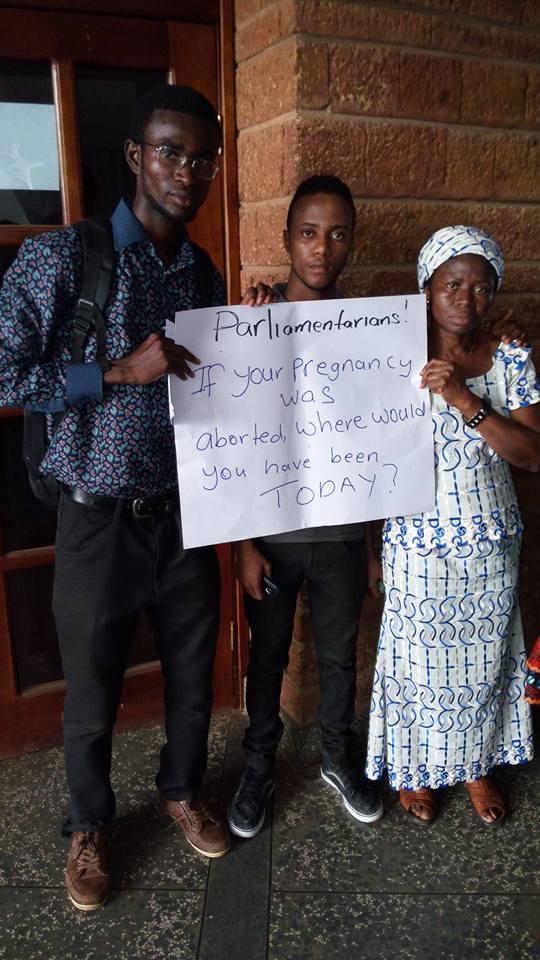 Parliamentarians!
If your Pregnancy
was
aborted, where would
you have been
TODAY?